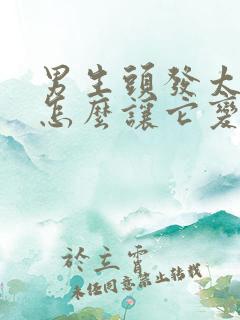 男生頭發太
怎麼讓它變
於立霄
未經同意禁止轉載